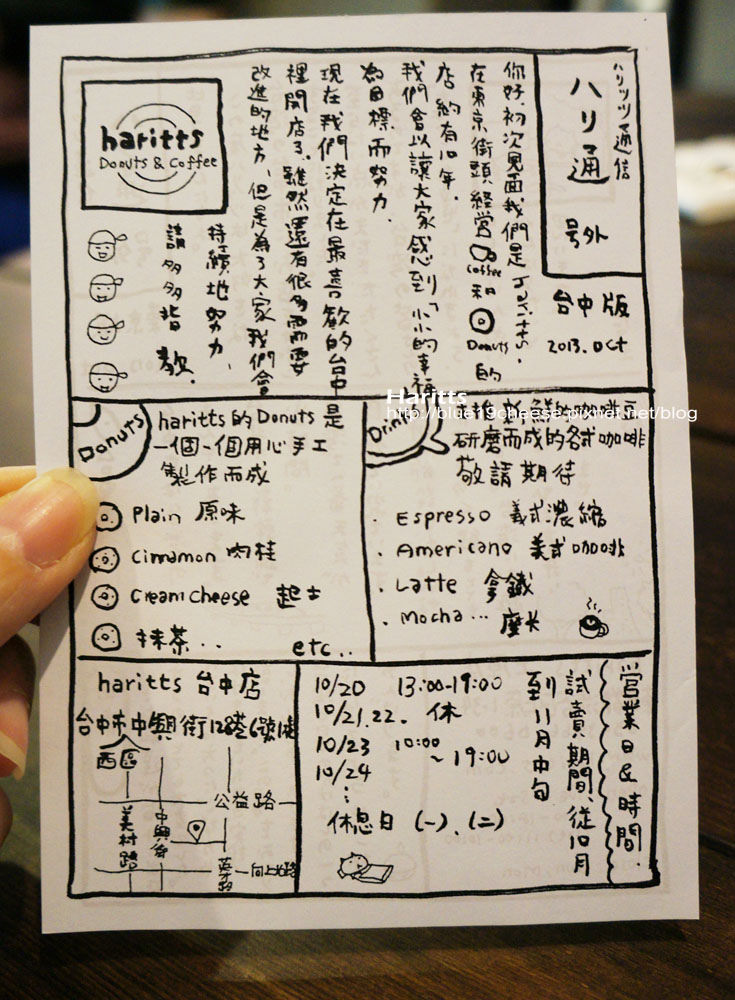 ハリッツ通信
ハリ通
号外
台中版
2013. Oct
你好,初次見面我們是haritts.
在東京街頭經營Coffee和Donuts的
店約有10年.
我們會以讓大家感到「小小的幸福
為目標而努力.
現在我們決定在最喜歡的台中
裡開店了.雖然還有很多需要
改進的地方,但是為了大家我們會
持續地努力,
請多多指教.
haritts
Donuts & Coffee
Donuts
haritts的Donuts是
一個一個用心手工
製作而成
Plain 原味
Cinnamon 肉桂
Cream cheese 起士
抹茶..
etc..
Drink
新鮮的咖啡豆
研磨而成的各式咖啡
敬請期待
. Espresso 義式濃縮
. Americano 美式咖啡
. Latte 拿鐵
. Mocha... 摩卡
Haritts
http://blue19cheese.pixnet.net/blog
haritts 台中店
台中市中興街128巷6號1樓
西區
公益路
美村路
中興街
英才路
向上北路
營業日&時間.
試賣期間、從10月
到11月中旬
10/20 13:00-19:00
10/21.22. 休
10/23 10:00
~19:00
10/24
⋮
休息日 (一)、(二)